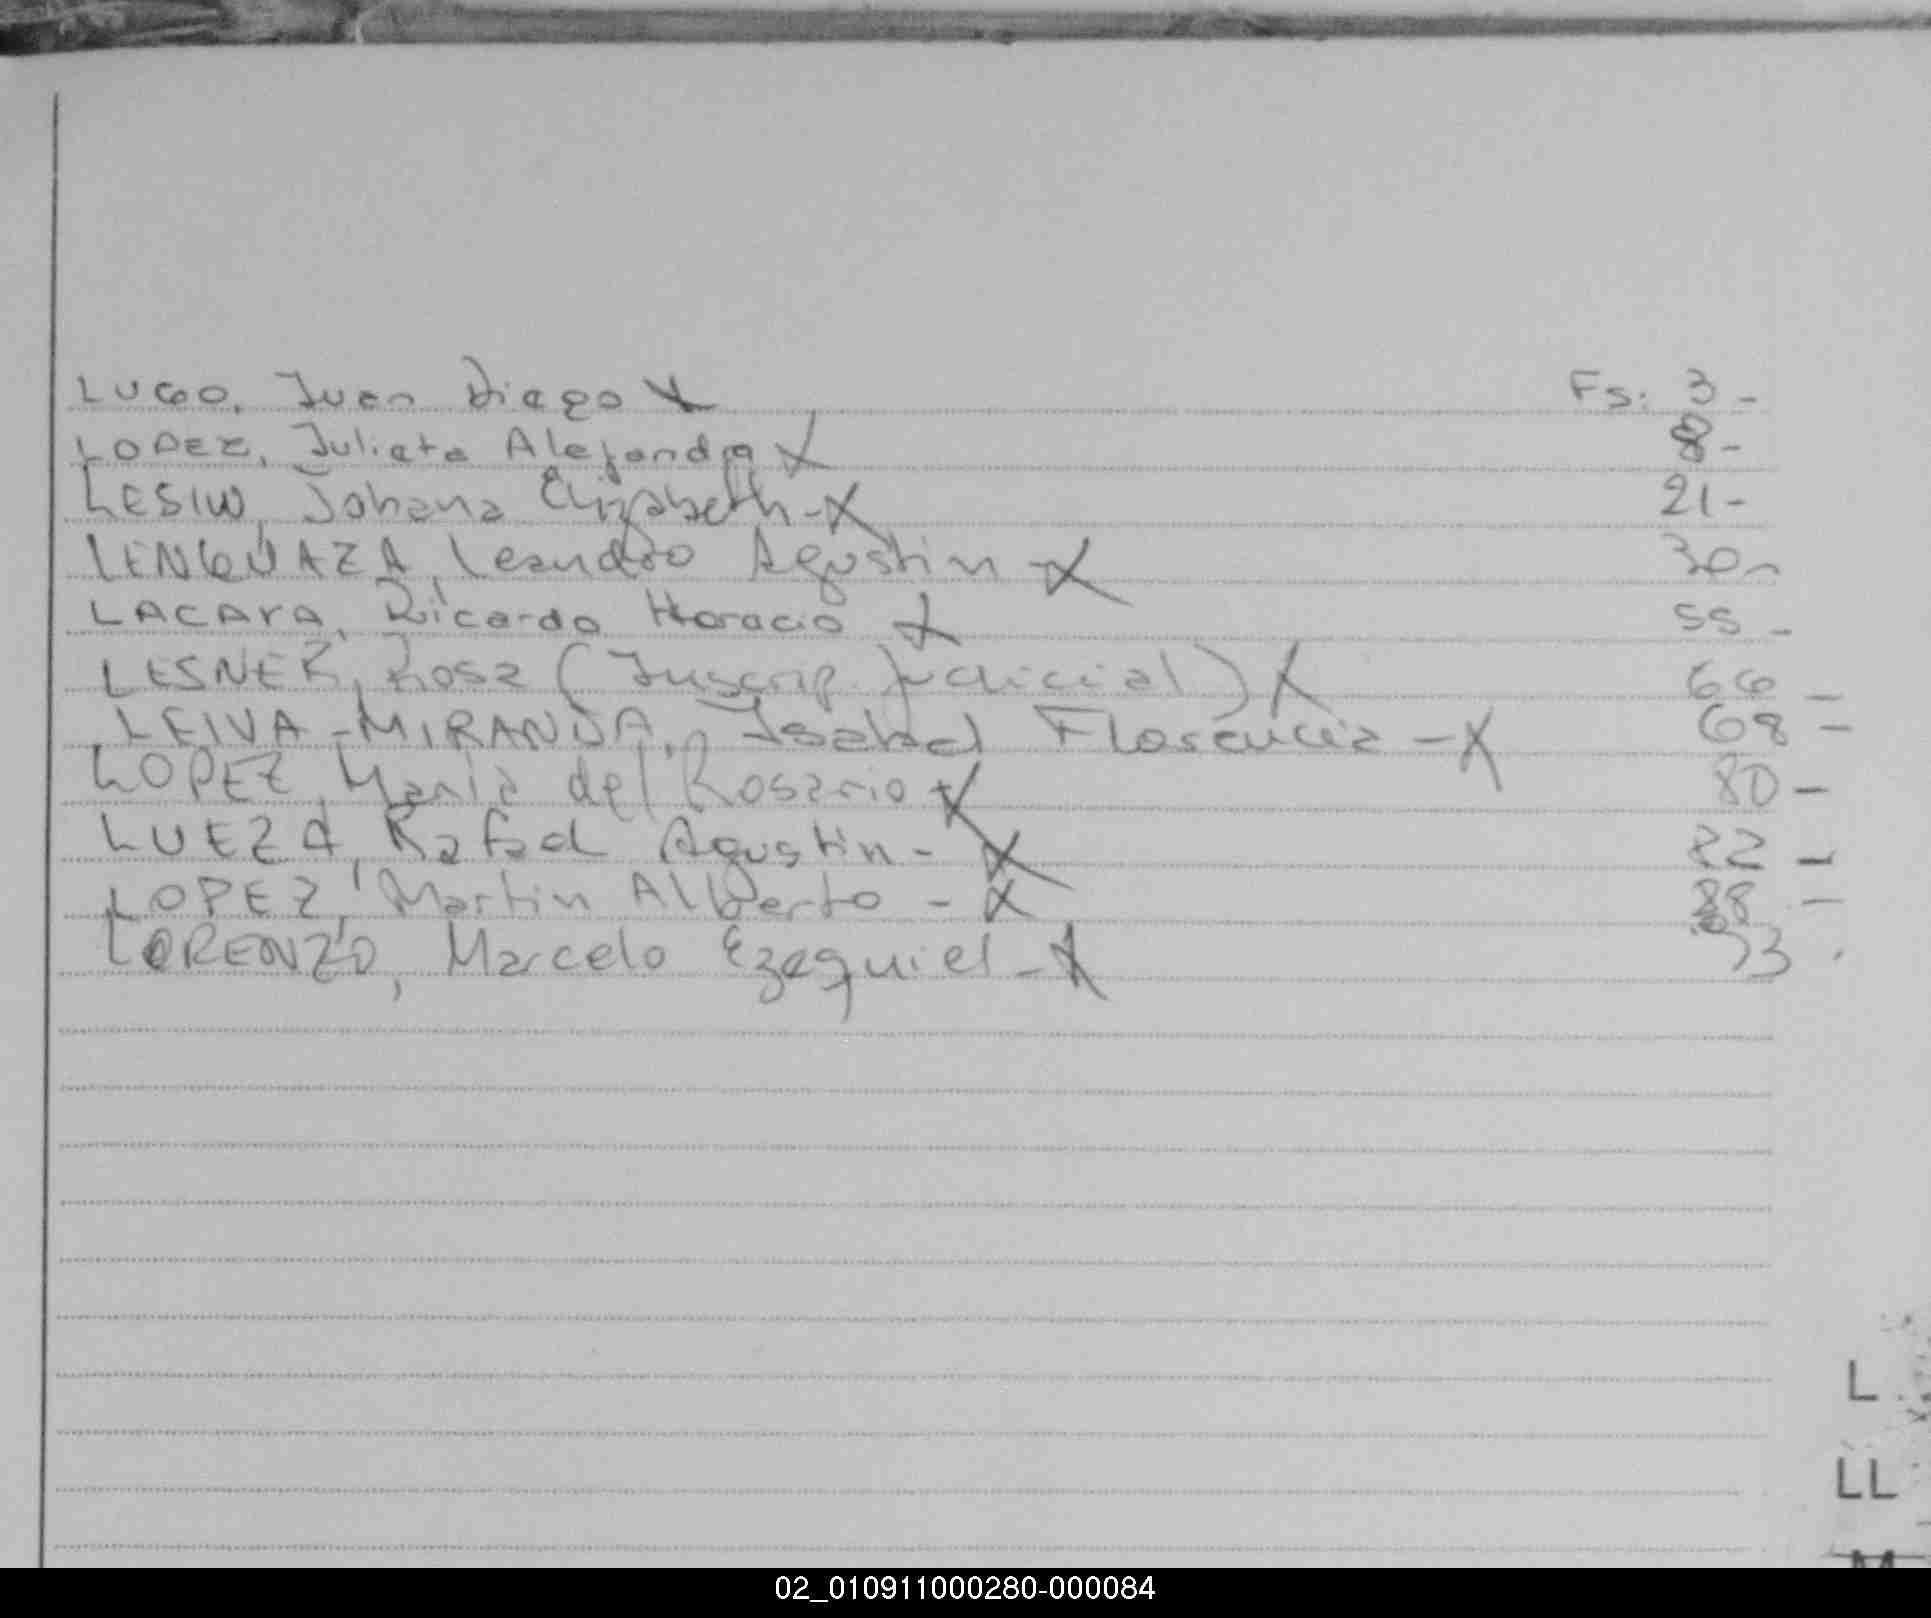 LUGO, Juan Diego X Fs: 3 -
LOPEZ, Julieta Alejandra X 8 -
LESIW, Johana Elizabeth - X 21 -
LENGUAZA, Leandro Agustin - X 30 -
LACAVA, Ricardo Horacio X 55 -
LESNER, Rosa (Inscrip. Judicial) X 66 -
LEIVA - MIRANDA, Isabel Florencia - X 68 -
LOPEZ, Maria del Rosario X 80 -
LUEZA, Rafael Agustin - X 82 -
LOPEZ, Martin Alberto - X 88 -
LORENZO, Marcelo Ezequiel - X 93
L
LL
M
02_010911000280-000084